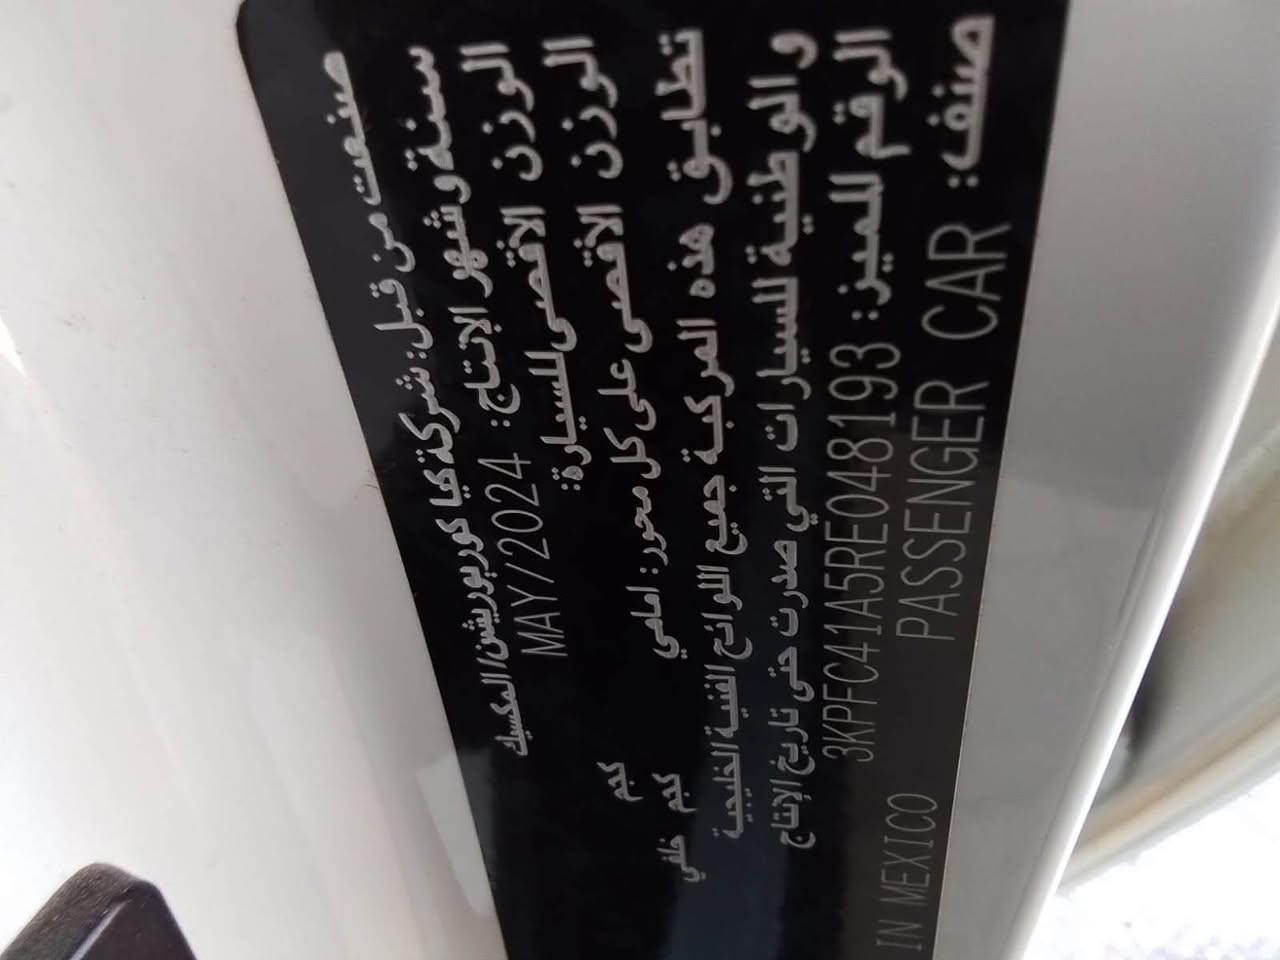 صنعت من قبل: شركة كيا كوربوريشن/المكسيك
سنة وشهر الإنتاج: MAY/2024
الوزن الاقصى للسيارة: كجم
الوزن الاقصى على كل محور: امامي كجم خلفي
تطابق هذه المركبة جميع اللوائح الفنية الخليجية
و الوطنية للسيارات التي صدرت حتى تاريخ الإنتاج
الرقم المميز: 3KPFC41A5RE048193
صنف: PASSENGER CAR
IN MEXICO